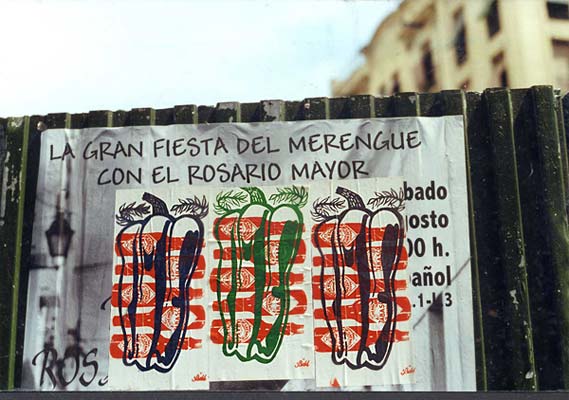 LA GRAN FIESTA DEL MERENGUE
CON EL ROSARIO MAYOR
bado
gosto
00 h.
añol
ROS